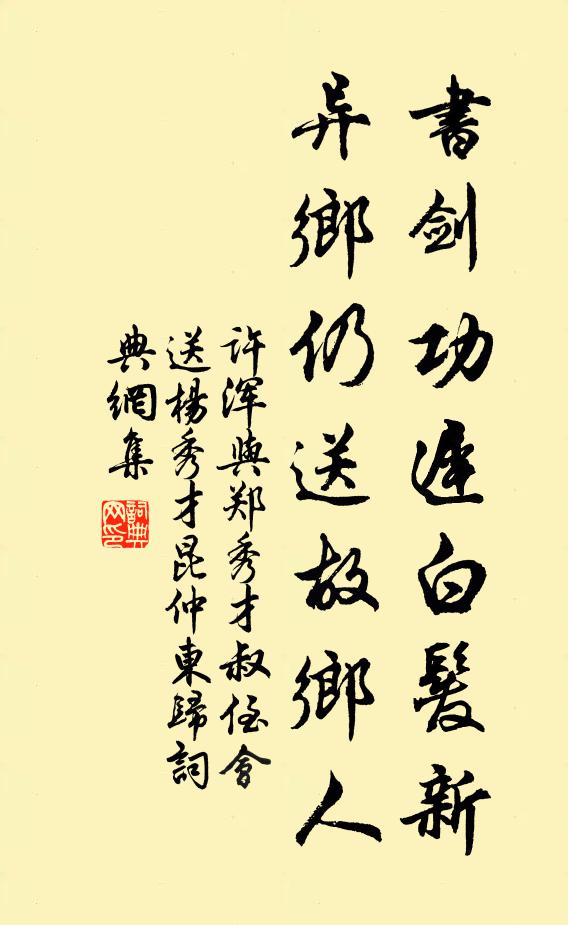 書劍功遲白髮新
异鄉仍送故鄉人
许渾與郑秀才叔侄會
送楊秀才昆仲東歸詞
典網集
詞典
网印